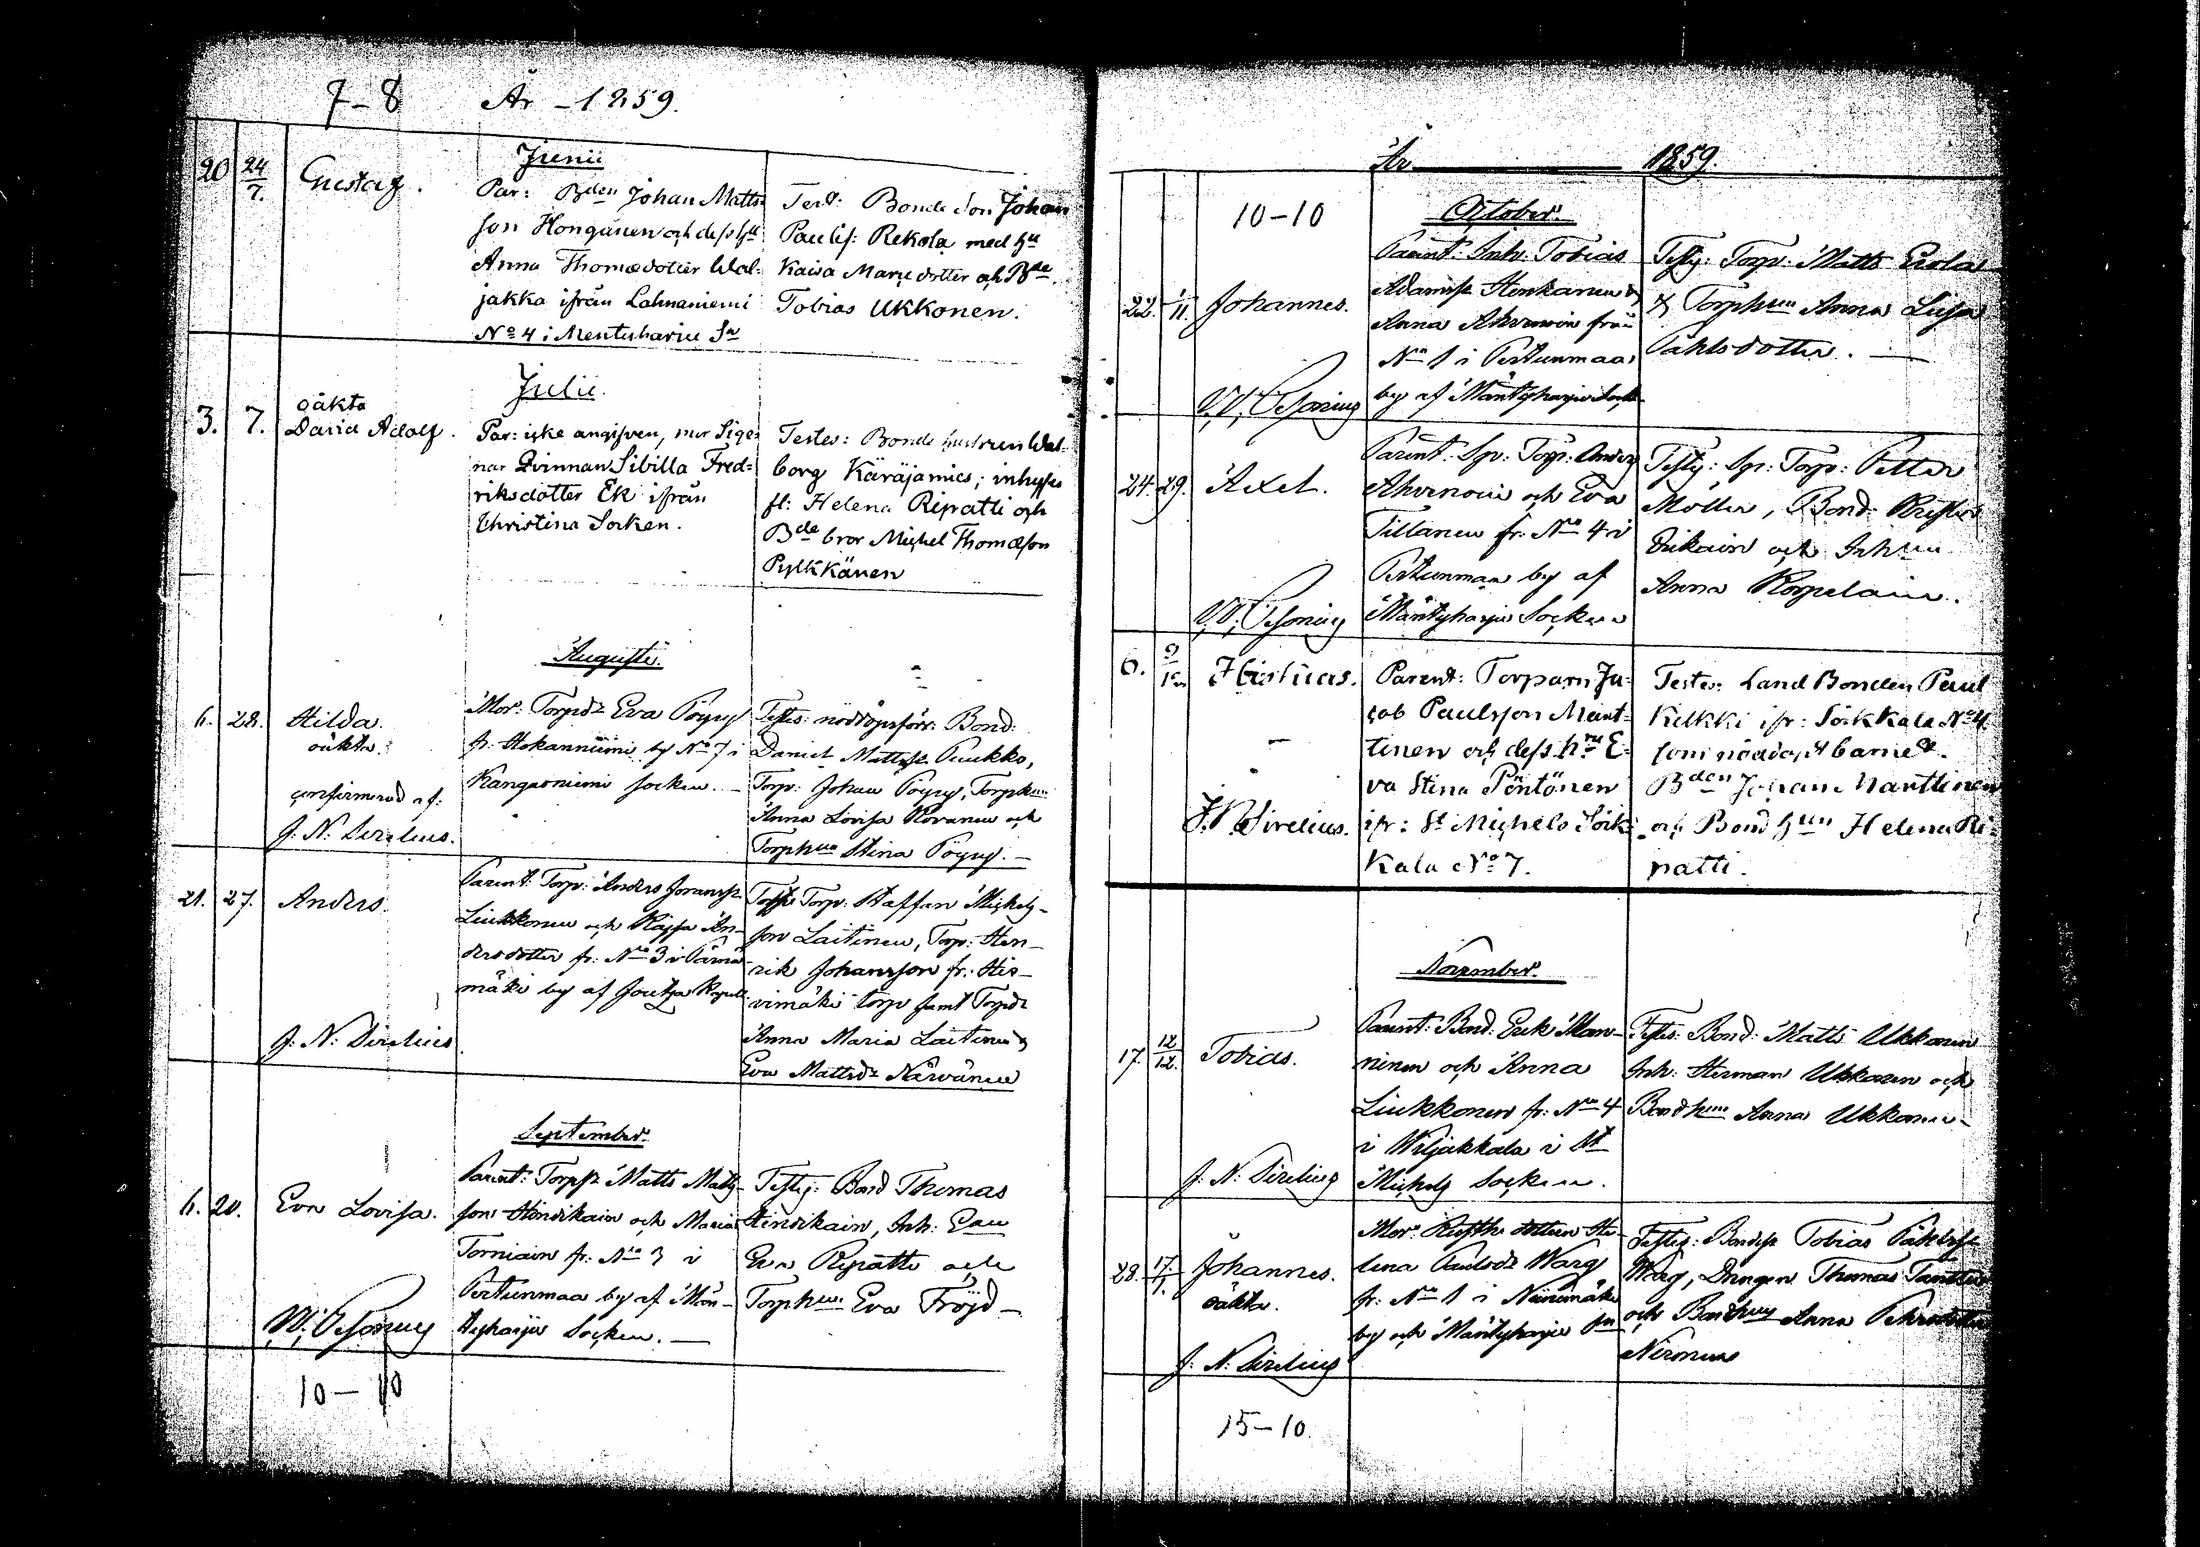 7–8 År – 1859.
Junii
20 24/7. Gustaf.
Par: Bden Johan Matts
son Honganen och dess hu
Anna Thomædotter Wal-
jakka ifrån Lahnaniemi
No 4 i Mentyharju Sn
Test: Bonde Son Johan
Paulss: Rekola med hu
Kaisa Marie dotter och Bde
Tobias Ukkonen.
Julii.
3. 7. oäkta
David Adolf.
Par: icke angifven, mor Sige-
nar Qvinnan Sibilla Fred-
riksdotter Ek ifrån
Christina Socken.
Testes: Bonde hustrun Wal-
borg Käräjamies; inhyses
fl: Helena Ripatti och
Bde bror Michel Thomæson
Pylkkänen
Augusti.
6. 28. Hilda.
oäkta.
confirmerad af:
J. N. Sirelius.
Mor: Torpdr Eva Pöyry
fr. Hokanniemi by No 7 i
Kangasniemi socken. –
Testes: nöddopsförr: Bond:
Daniel Mattss Puukko,
Torp: Johan Pöyry, Torphun
Anna Lovisa Kovanen och
Torphun Stina Pöyry. –
21. 27. Anders.
J: N: Sirelius
Parent: Torp: Anders Joransr
Liukkonen och Kajsa An-
dersdotter fr: No 3 i Pärnä-
mäki by af Joutsa Kapell
Testes Torp: Staffan Michels-
son Laitinen, Torp: Hen-
rik Johansson fr: Hir-
vimäki torp samt Torpdr
Anna Maria Laitinen &
Eva Mattsdr Närvänen
September.
6. 20. Eva Lovisa.
Parent: Torpsr Matts Matts-
son Hendikain och Maria
Torniain fr: No 3 i
Pertunmaa by af Män-
tyharju Socken. –
Testes: Bond Thomas
Hendikain, Inh: Enn
Eva Ripatti och
Torphun Eva Fröjd –
10 – 10
År 1859.
10–10 October.
22. 1/11. Johannes.
Parent: Inh: Tobias
Adamss Honkanen &
Anna Ahvenain från
No 1 i Pertunmaa
by af Mäntyharju Sock
Testes: Torp: Matts Erola
& Torphun Anna Lisa
Pahlsdotter. –
24. 29. Axel.
Parent: Sp: Torp: Anders
Ahvenain och Eva
Tillanen fr: No 4 i
Pertunmaa by af
Mäntyharju Socken
Testes: Sp: Torp: Petter
Moller, Bond: Christer
Erikain och Inhun
Anna Korpelain.
6. 9/10
J. N. Sirelius.
Parent: Torparn Ja-
cob Paulsson Mant-
tinen och dess hru E-
va Stina Pöntönen
ifr: St Michels Sock
Kala No 7.
Testes: Land Bonden Paul
Kelkki ifr: Sockkala No 4
som nöddöpt barnet.
Bden Johan Manttinen
och Bond hun Helena Ri-
patti.
November.
17. 12/12. Tobias.
J: N: Sirelius
Parent: Bond: Erik Man-
ninen och Anna
Liukkonen fr: No 4
i Wiljakkala i St
Michels Socken.
Testes: Bond: Matts Ukkonen
Inh: Herman Ukkonen och
Bondhun Anna Ukkonen –
28. 17/1. Johannes.
oäkta.
J: N: Sirelius
Mor: Rusth: dottern He-
lena Paulsdr Warg
fr: No 1 i Niinimäki
by och Mäntyharju sn
Testes: Bondesr Tobias Påhlss
Warg, Drängen Thomas
och Bondhun Anna Pehrsdotter
Nironen
15–10.